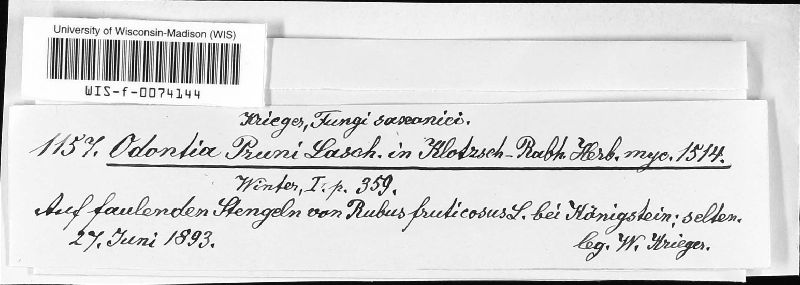 University of Wisconsin-Madison (WIS)
WIS-f-0074144
Krieger, Fungi saxonici.
1157. Odontia Pruni Lasch. in Klotzsch-Rabh. Herb. myc. 1514.
Winter, I. p. 359.
Auf faulenden Stengeln von Rubus fruticosus L. bei Königstein; selten.
27. Juni 1893.
leg. W. Krieger.